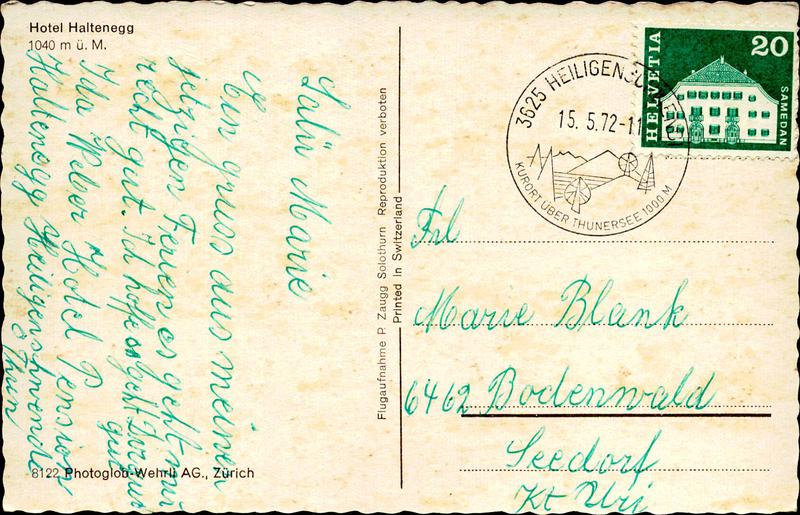 Hotel Haltenegg
1040 m ü. M.
Salü Marie
Ein gruss aus meinen
jetzigen Ferien es geht mir
recht gut. Ich hoffe es geht Dir aus
gut
Ida Weber Hotel Pension
Haltenegg Heiligenschwendi
o Thun
8122 Photoglob-Wehrli AG., Zürich
Flugaufnahme P. Zaugg Solothurn Reproduktion verboten
Printed in Switzerland
3625 HEILIGENSCHWENDI
15.5.72-11
KURORT ÜBER THUNERSEE 1000 M
HELVETIA
20
SAMEDAN
Frl
Marie Blank
6462 Bodenwald
Seedorf
Kt Uri